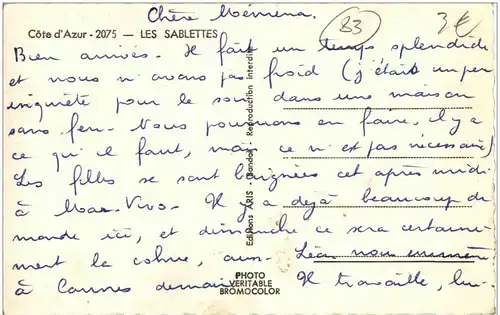 Chère Mémina.
83
3€
Côte d'Azur - 2075 — LES SABLETTES
Bien arrivés. Il fait un temps splendide
et nous n'avons pas froid (j'étais un peu
inquiète pour le soir dans une maison
sans feu. Nous pourrions en faire, il y a
ce qu'il faut, mais ce n'est pas nécessaire)
Les filles se sont baignées cet après midi
à Mar-Vivo. Il y a déjà beaucoup de
monde ici, et dimanche ce sera certaine-
ment la cohue, aussi Léon nous emmène
à Cannes demain. Il travaille, lui-
Editions ARIS - Bandol - Reproduction interdite
PHOTO
VERITABLE
BROMOCOLOR